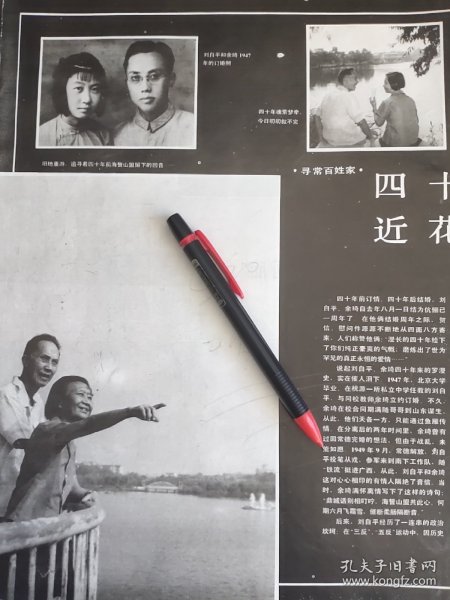 刘自平和余绮1947
年的订婚照
四十年魂萦梦牵，
今日叨叨叙不完
旧地重游，追寻着四十年前海誓山盟留下的回音
·寻常百姓家·
四十
近花
四十年前订情，四十年后结婚，刘
自平、余绮自去年八月一日结为伉俪已
一周年了。在他俩结婚周年之际，贺
信、慰问件源源不断地从四面八方寄
来，人们称赞他俩：“漫长的四十年经下
了你们纯正豪爽的气概，磨炼出了世为
罕见的真正永恒的爱情……”
说起刘自平、余绮四十年来的罗漫
史，实在催人泪下。1947年，北京大学
毕业、在桃源一所私立中学任教的刘自
平，与同校教师余绮立约订婚。不久，
余绮在校合同期满随哥哥到山东谋生，
从此，他们天各一方，只能通过鱼雁传
情。在分离后的两年时间里，余绮曾有
过回常德完婚的想法，但由于战乱，未
能如愿。1949年9月，常德解放，刘自
平投笔从戎，参军来到南下工作队，随
“铁流”挺进广西，从此，刘自平和余绮
这对心心相印的有情人隔绝了音信。当
时，余绮满怀离情写下了这样的诗句：
“鼎城话别相叮咛，海誓山盟共此心，何
期六月飞霜雪，催断柔肠隔断音。”
后来，刘自平经历了一连串的政治
坎坷，在“三反”、“五反”运动中，因历史
孔夫子旧书网
www.kongfz.com